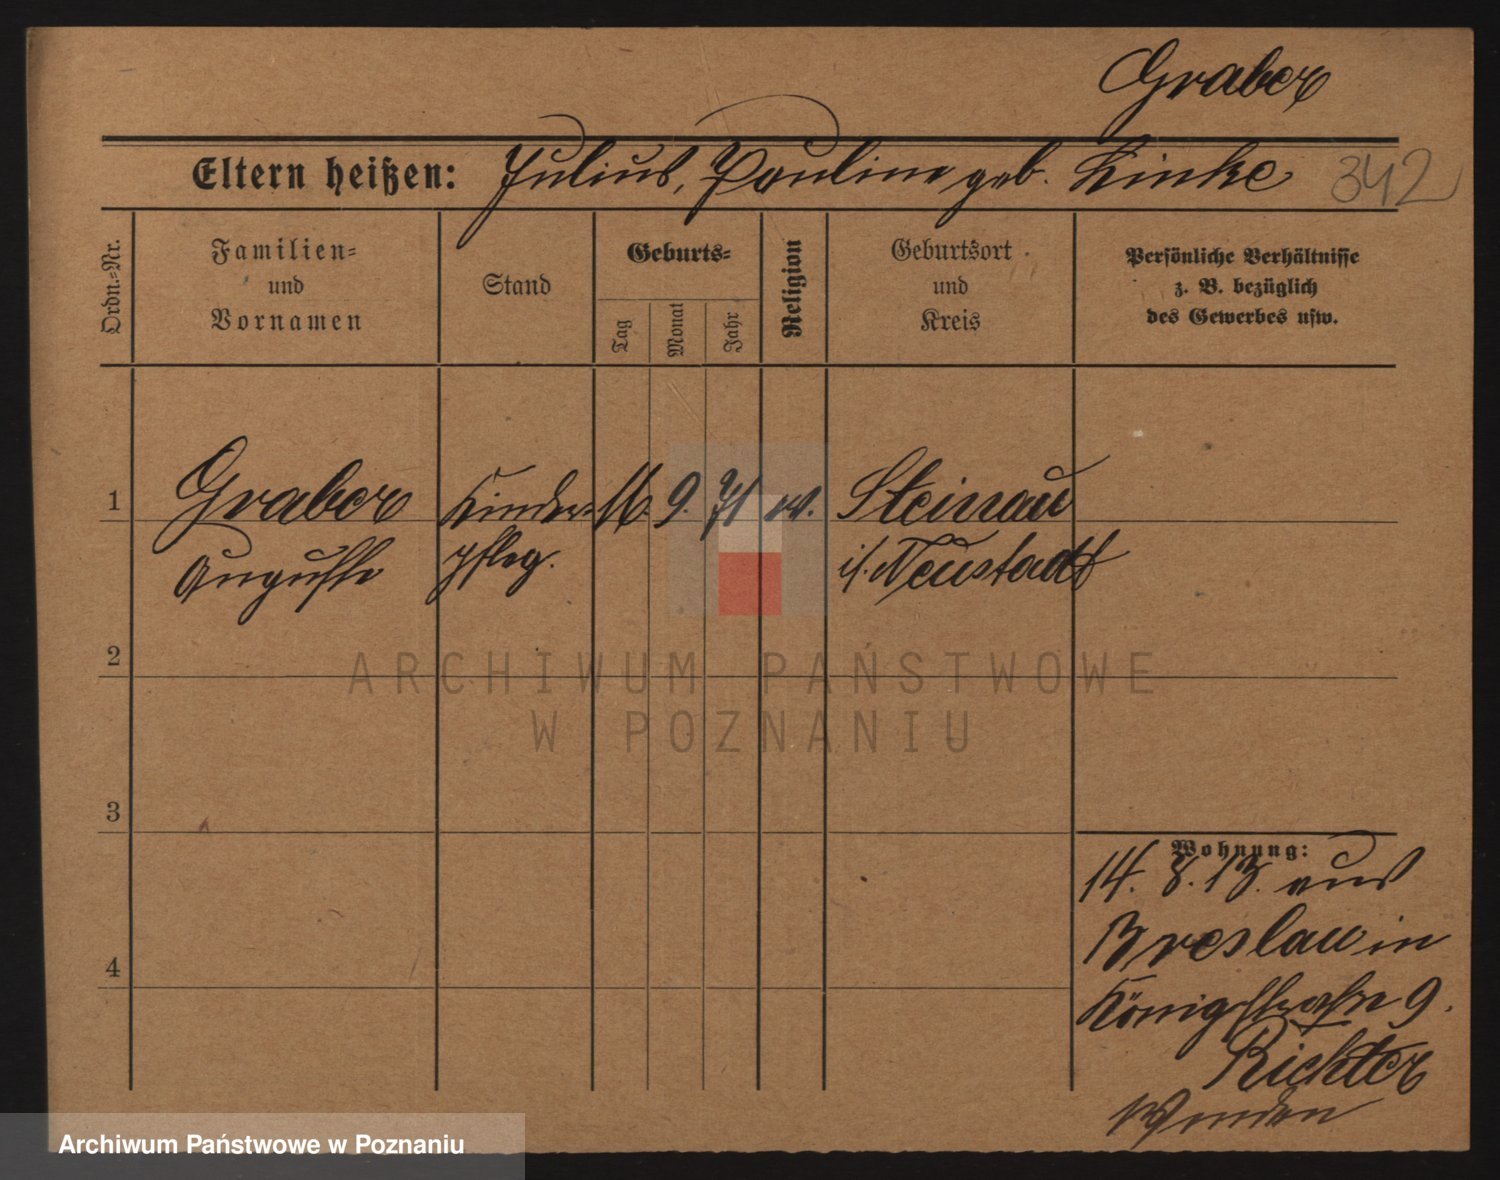 Graber
Eltern heißen: Julius, Pauline geb. Linke 342
Ordn.-Nr.
Familien-
und
Vornamen
Stand
Geburts-
Tag
Monat
Jahr
Religion
Geburtsort
und
Kreis
Persönliche Verhältnisse
z. B. bezüglich
des Gewerbes usw.
1 Graber Kinder- 16. 9. 71 ev. Steinau
Auguste pfleg. i/. Neustadt
2
ARCHIWUM PAŃSTWOWE
W POZNANIU
3
Wohnung:
14. 8. 13. aus
Breslau in
4
Königstraße 9.
Richter
Wenden
Archiwum Państwowe w Poznaniu